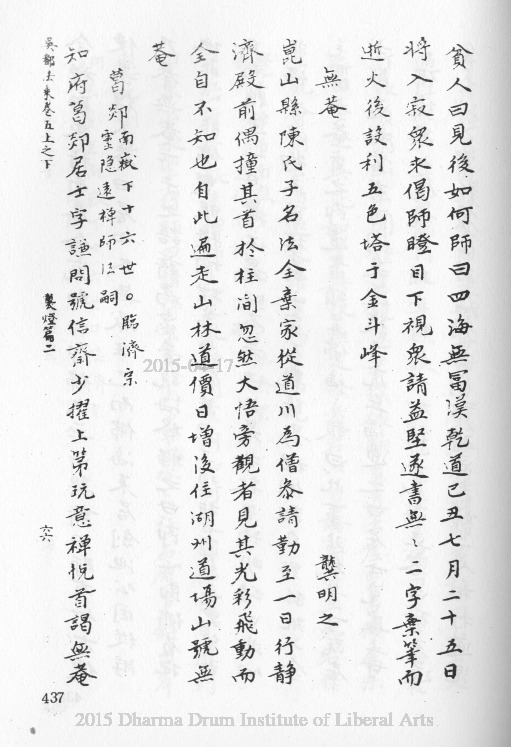 貧人曰見後如何師曰四海無富漢乾道己丑七月二十五日
將入寂衆求偈師瞪目下視衆請益堅遂書無〻二字棄筆而
逝火後設利五色塔于金斗峰
無菴 龔明之
崑山縣陳氏子名法全棄家從道川為僧叅請勤至一日行静
濟殿前偶撞其首於柱间忽然大悟旁觀者見其光彩飛動而
全自不知也自此遍走山林道價日增後住湖州道場山號無
菴
葛郯 南嶽下十六世○臨濟宗
靈隐遠禅師法嗣
知府葛郯居士字謙問號信齋少擢上第玩意禅悦首謁無菴
吳都法乘卷五上之下 熒燈篇二 六六
437
2015-04-17
2015 Dharma Drum Institute of Liberal Arts